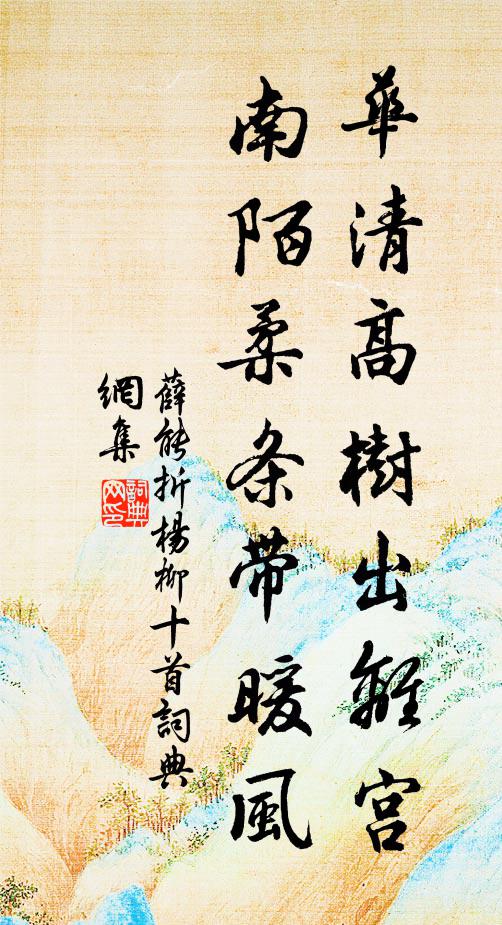 華清高樹出離宮
南陌柔条带暖風
薛能折楊柳十首詞典
網集
詞典
网印